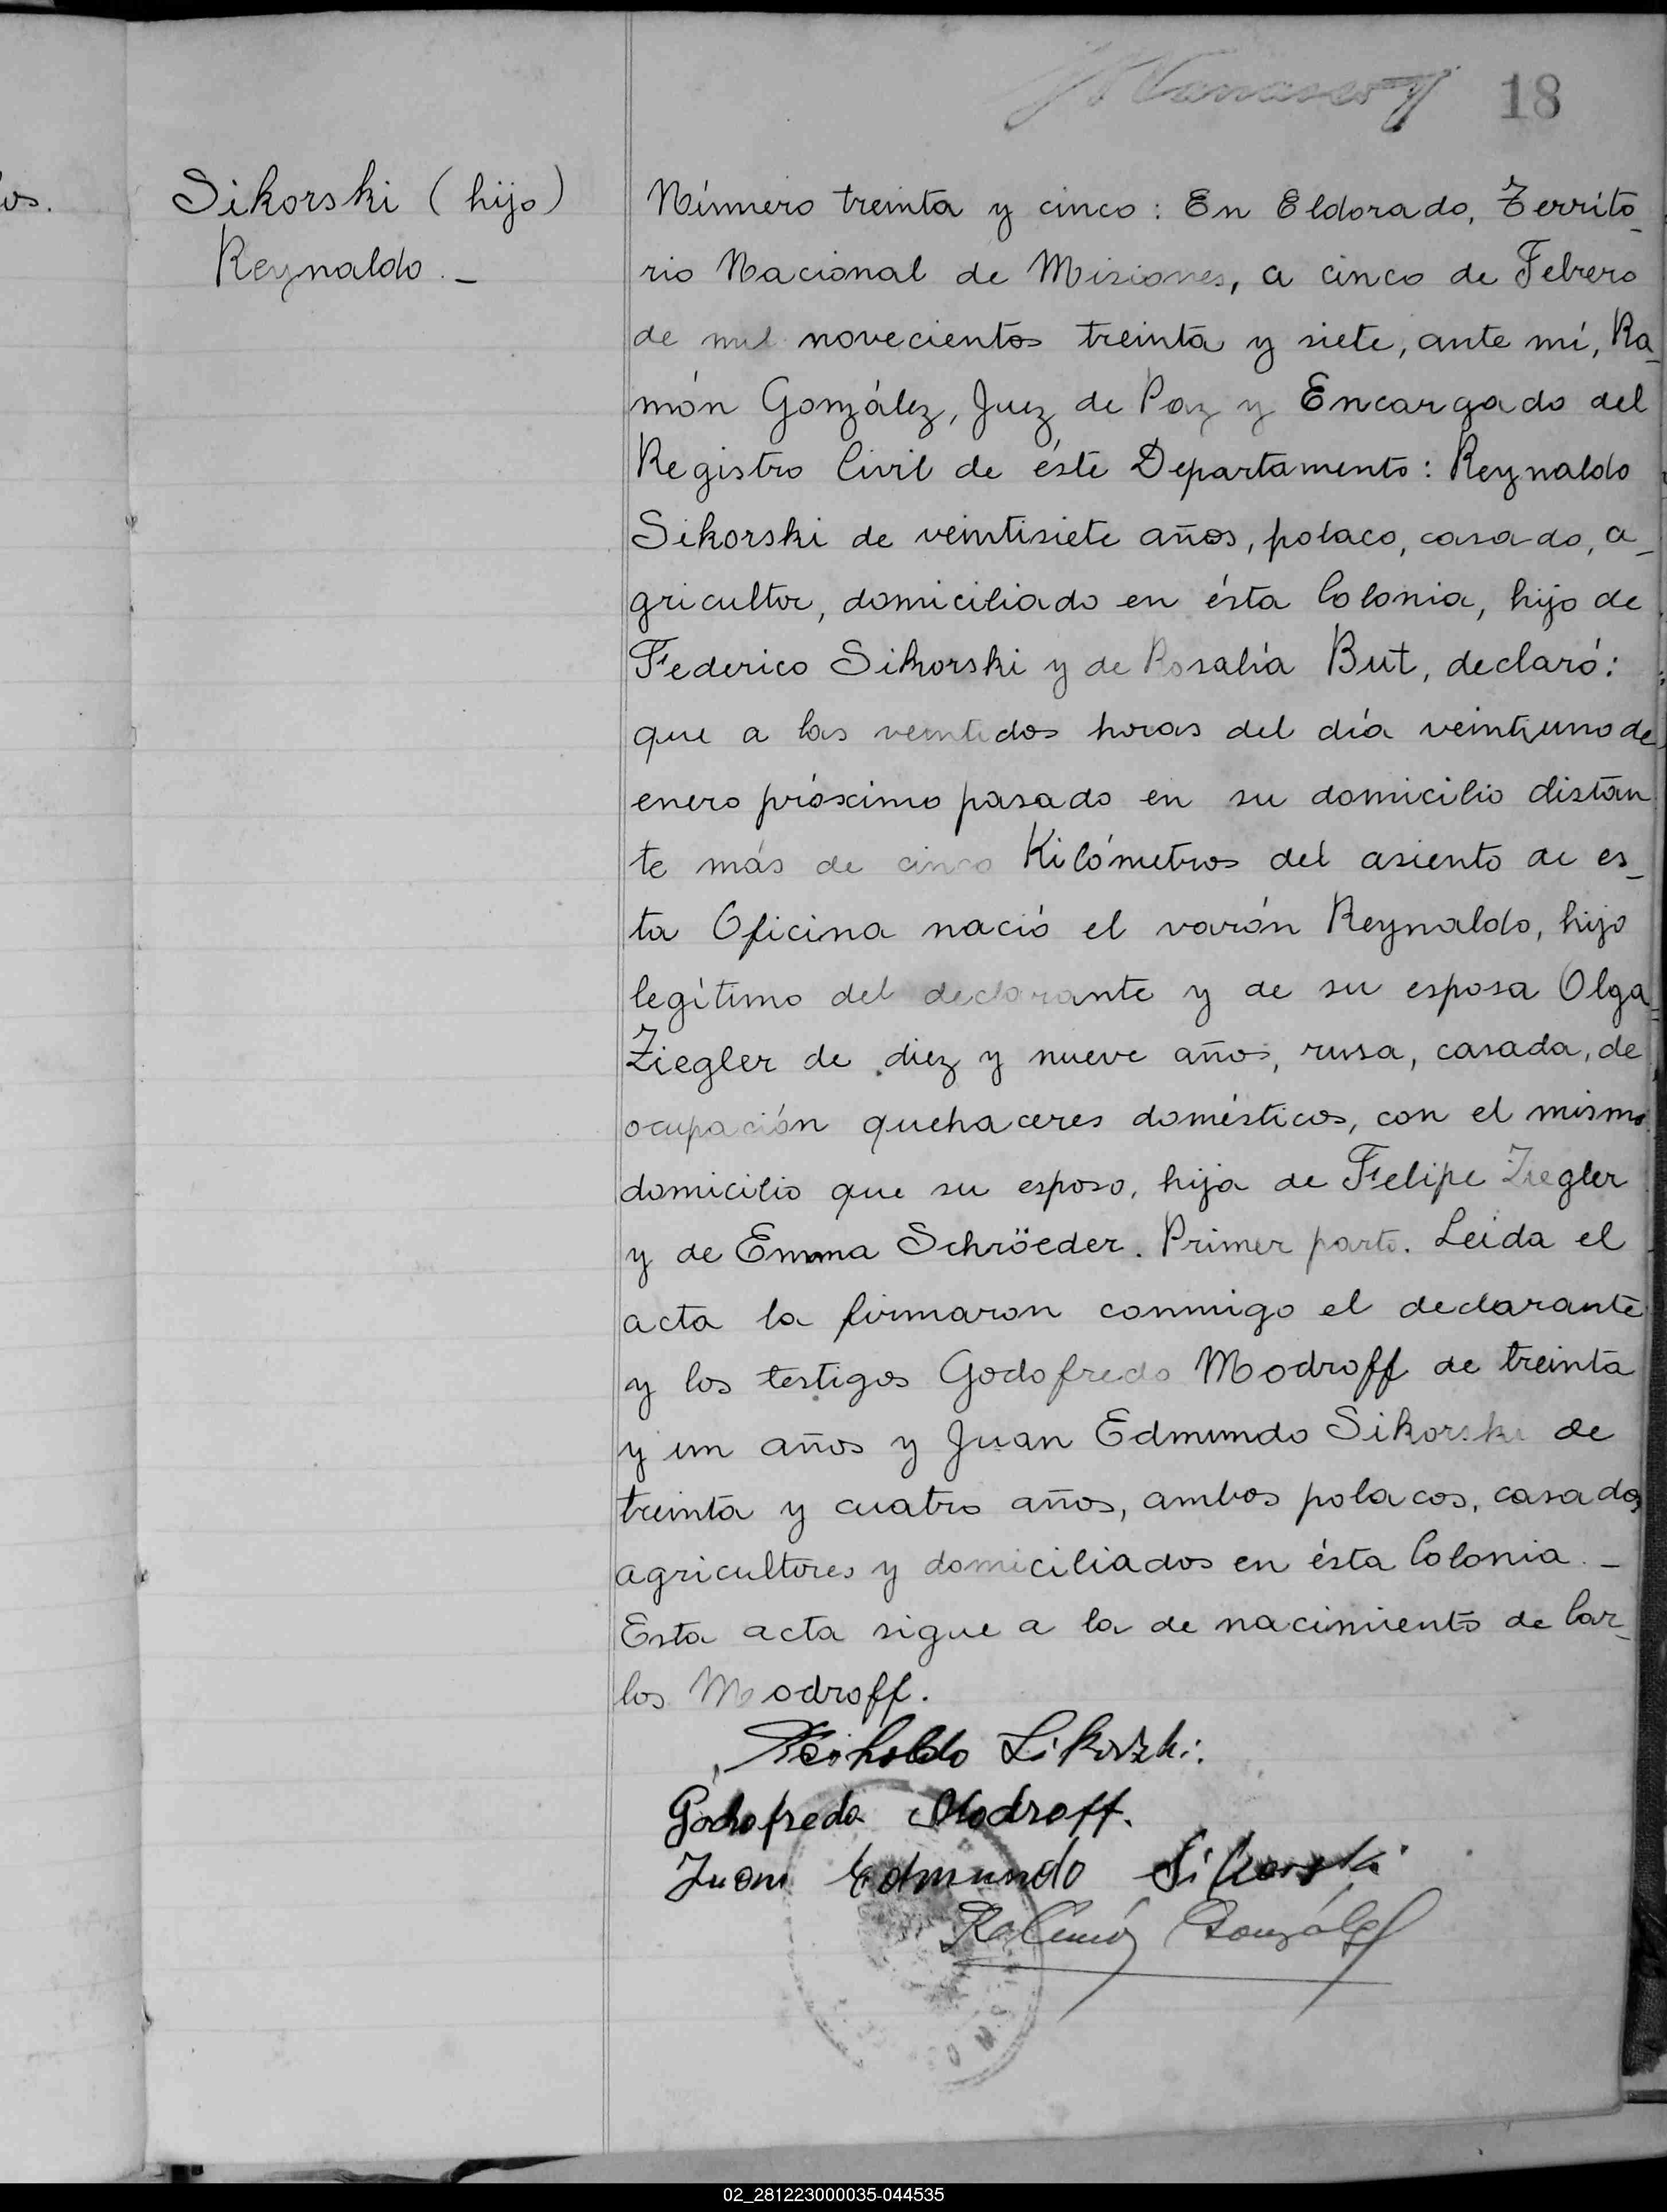 18
os.
Sikorski (hijo)
Reynaldo._
Número treinta y cinco: En Eldorado, Territo_
rio Nacional de Misiones, a cinco de Febrero
de mil novecientos treinta y siete, ante mí, Ra_
món González, Juez de Paz y Encargado del
Registro Civil de éste Departamento: Reynaldo
Sikorski de veintisiete años, polaco, casado, a_
gricultor, domiciliado en ésta Colonia, hijo de
Federico Sikorski y de Rosalía But, declaró:
que a las veintidos horas del día veintiuno de
enero próximo pasado en su domicilio distan
te más de cinco Kilómetros del asiento de es_
ta Oficina nació el varón Reynaldo, hijo
legítimo del declarante y de su esposa Olga
Ziegler de diez y nueve años, rusa, casada, de
ocupación quehaceres domésticos, con el mismo
domicilio que su esposo, hija de Felipe Ziegler
y de Emma Schröeder. Primer parto. Leída el
acta la firmaron conmigo el declarante
y los testigos Godofredo Modroff de treinta
y un años y Juan Edmundo Sikorski de
treinta y cuatro años, ambos polacos, casados
agricultores y domiciliados en ésta Colonia._
Esta acta sigue a la de nacimiento de Car_
los Modroff.
Reinholdo Sikorzki.
Godofredo Modroff.
Juan Edmundo Sikorski
Ramón González
02_281223000035-044535